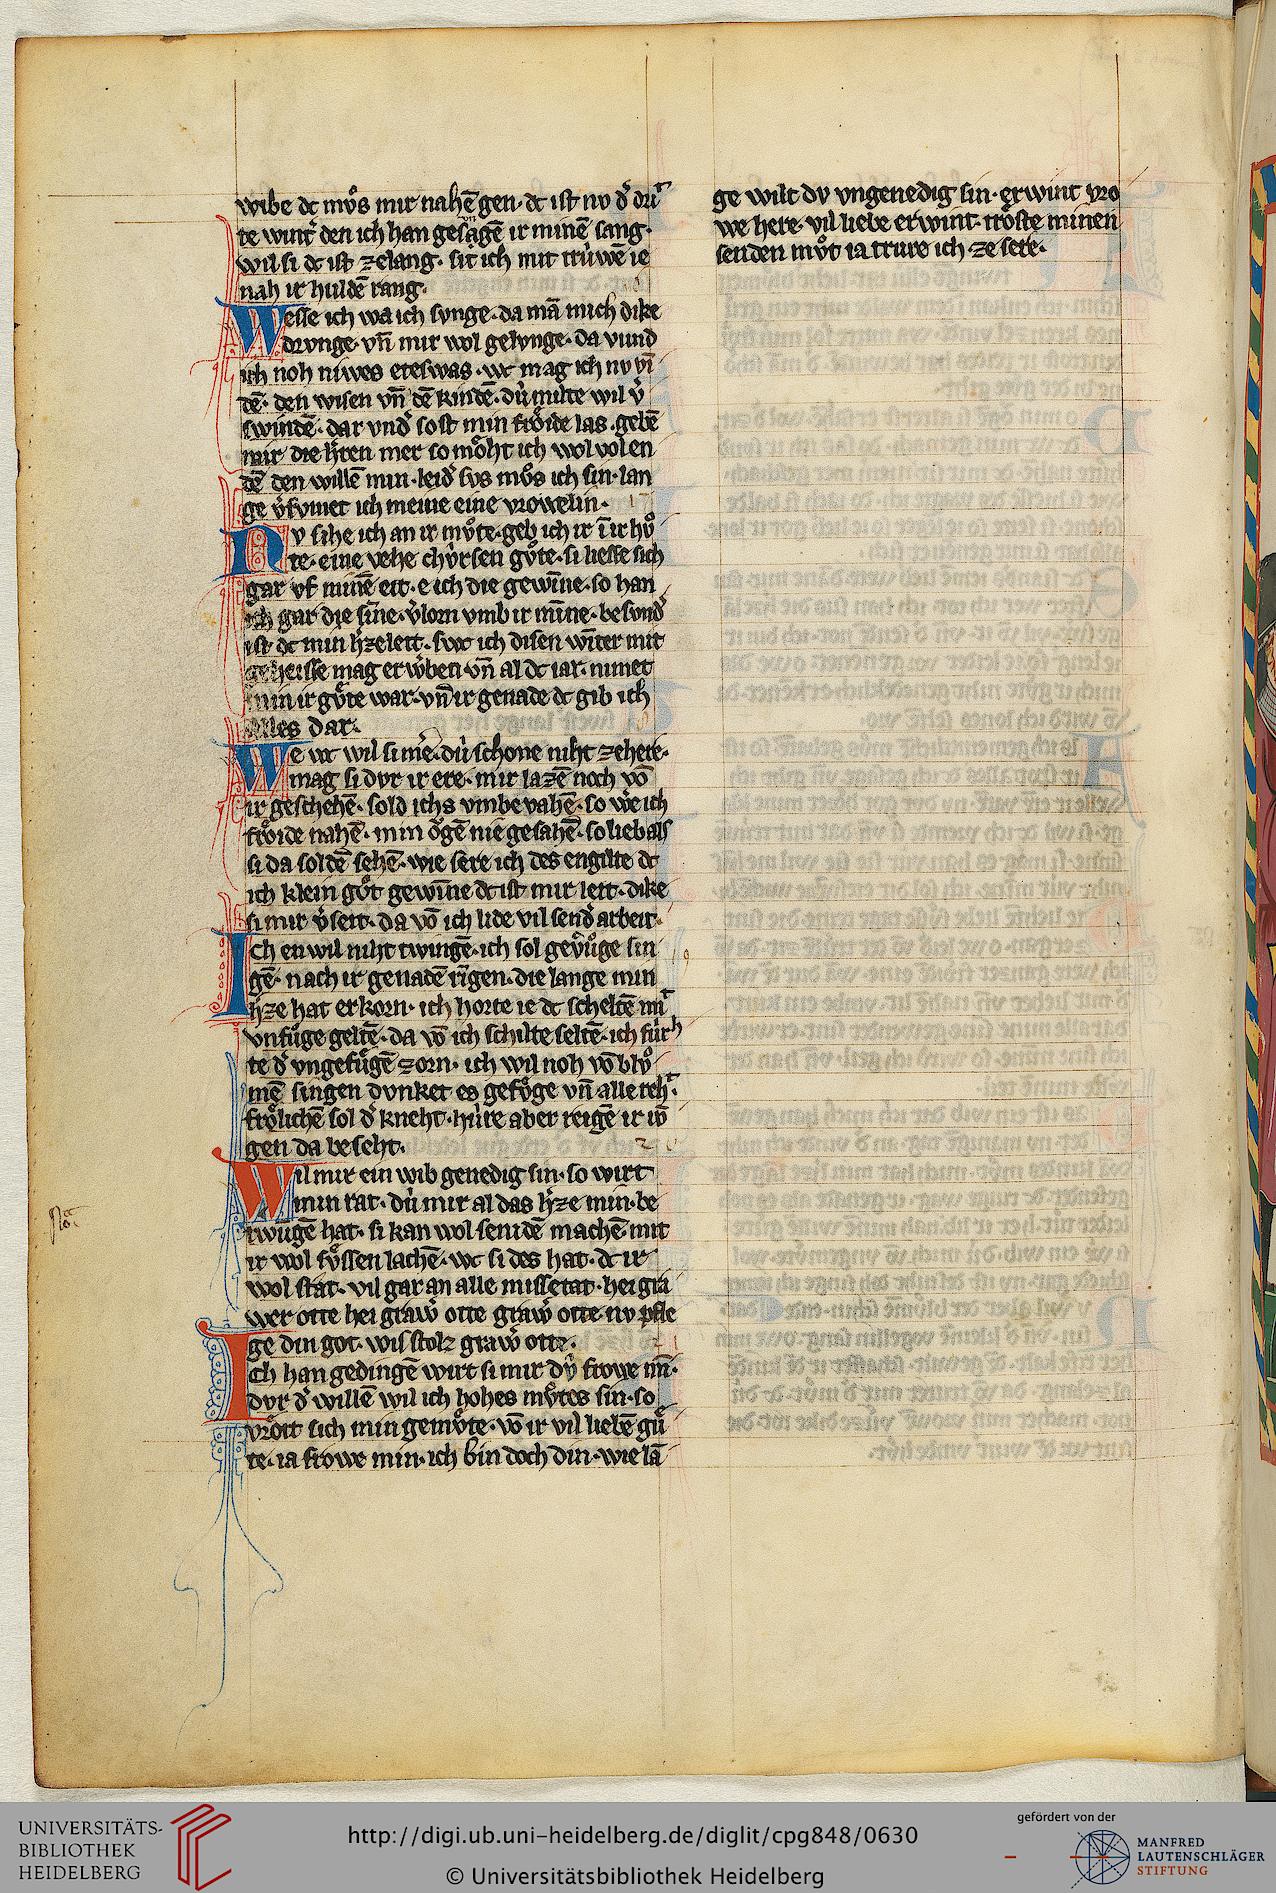 wibe dc mvͦs mir nahē gen· dc ist nv dˀ drit
te wintˀ den ich han gesāgē ir minē sang·
wil si dc ist zelang· sit ich mit trúwē ie
nah ir huldē rang·
Wesse ich wa ich svnge· da mā mich dike
drvnge· vn̄ mir wol gelvnge· da vund
ich noh niwes eteswas· wc mag ich nv vī
dē· den wisen vn̄ dē kindē· dú milte wil vˀ
swindē· dar vndˀ so ist min froͤide las· gebē
mir die hˀren mer so moͤht ich wol vol en
dē den willē min· leidˀ svs mvͦs ich sin· lan
ge vˀsvmet ich meine eine vrowelin·
Nv sihe ich an ir mvͦte· geb ich ir ī ir hvͦ
te· eine vehe chv́rsen gvͦte· si liesse sich
gar vf minē eit· e ich die gewīne· so han
ich gar die sīne· vˀlorn vmb ir mīne· besundˀ
ist dc min hˀzeleit· swc ich disen wīter mit
geheisse mag erwˀben· vn̄ al dc iar· nimet
min ir gvͤte war· vn̄ ir genade dc gib ich
alles dar·
We wc wil si mē· dú schone niht zehere·
mag si dvr ir ere· mir lazē noch vō
ir geschehē· sold ichs vmbevahē· so wˀe ich
froͤide nahē· min oͮgē nie gesahē· so lieb als
si da soldē sehē· wie sere ich des engilte dc
ich klein gvͦt gewīne dc ist mir leit· dike
si mir vˀseit· da vō ich lide vil sendˀ arbeit·
Ich en wil niht twingē· ich sol gevuͤge sin
gē· nach ir genadē rīgen· die lange min
hˀze hat erkorn· ich horte ie dc scheltē mit
vnfuͤge geltē· da vō ich schilte seltē· ich fúrh
te dˀ vngefuͤgē zorn· ich wil noh vō blvͦ
mē singen dvnket es gefvͤge vn̄ alle reht·
froͤlichē sol dˀ kneht· húre aber reigē ir ro
gen da beseht·
Wil mir ein wib genedig sin· so wirt
min rat· dú mir al das hˀze min· be
twūgē hat· si kan wol senidē machē mit
ir wol svͤssen lachē· wc si des hat· dc ir
wol stat· vil gar an alle missetat· hei gra
wer otte hei grawˀ otte grawˀ otte nv pfle
ge din got· wis stolz grawˀ otte·
Ich han gedingē wirt si mir dv́ frowe mī·
dvr dˀ willē wil ich hohes mvͦtes sin· so
vroͤit sich min gemvͤte· vō ir vil liebē guͤ
te· ia frowe min· ich bin doch din· wie lā
ge wilt dv vngenedig sin· erwint vro
we here· vil liebe erwint· troste minen
senden mvͦt ia trure ich· ze sere·
UNIVERSITÄTS-
BIBLIOTHEK
HEIDELBERG
http://digi.ub.uni-heidelberg.de/diglit/cpg848/0630
© Universitätsbibliothek Heidelberg
gefördert von der
MANFRED
LAUTENSCHLÄGER
STIFTUNG